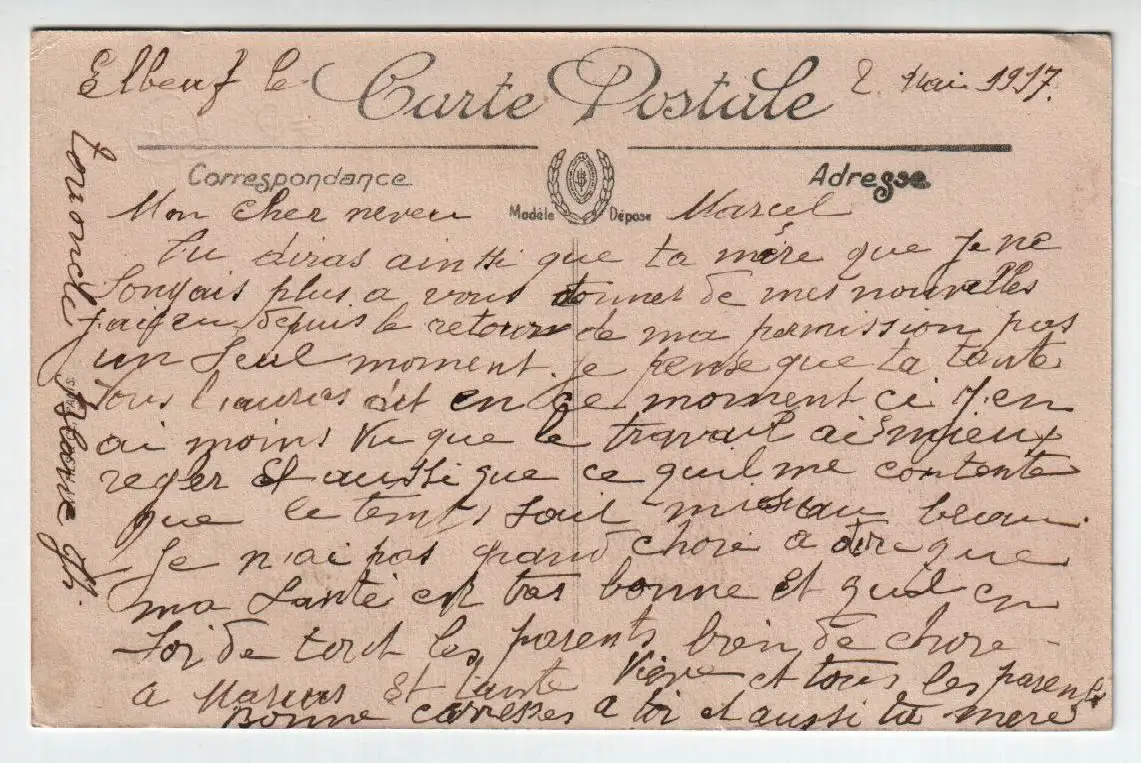 Elbeuf le 2 Mai 1917.
Carte Postale
Correspondance
Adresse
Modèle Déposé
Mon cher neveu Marcel
Tu diras ainssi que ta mère que je ne
Songais plus a vous donner de mes nouvelles
j'ai eu depuis le retour de ma permission pas
un Seul moment. je pense que ta tante
vous l'auras dit en ce moment ci j'en
ai moins vu que le travail ai mieux
regler Et aussi que ce quil me contente
que le temps Soit mis au beau.
Je n'ai pas grand chose a dire que
ma Santé est tres bonne Et quil en
Soi de tout les parents bien de chose
a Marius Et tante et tous les parents
Bonne caresses a toi et aussi ta mere
ton oncle